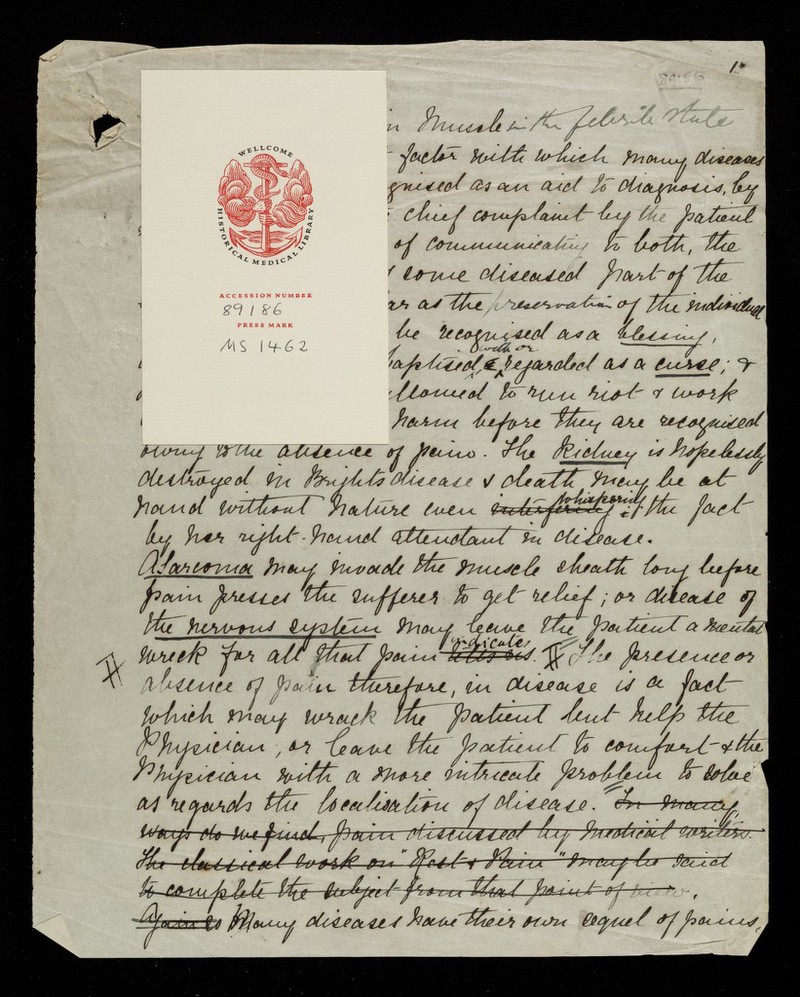 1.
89186
WELLCOME
HISTORICAL MEDICAL LIBRARY
ACCESSION NUMBER
89186
PRESS MARK
MS 1462
in Muscle in the febrile state
factor with which many diseases
gnised as an aid to diagnosis, by
chief complaint by the patient
of communicating to both, the
some diseased part of the
ar as the preservation of the individual
be recognised as a blessing,
with or
baptised, & regarded as a curse; &
llowed to run riot & work
harm before they are recognised
owing to the absence of pain. The Kidney is hopelessly
destroyed in Brights disease & death may be at
whispering
hand without Nature even interfering it the fact
by her right-hand attendant in disease.
A Sarcoma may invade the muscle sheath long before
pain presses the sufferer to get relief; or disease of
the nervous system may leave the patient a mental
indicates
wreck for all that pain tells us. The presence or
absence of pain therefore, in disease is a fact
which may wrack the patient but help the
Physician, or leave the patient to comfort & the
Physician with a more intricate problem to solve
as regards the localisation of disease. In many
ways do we find, pain discussed by medical writers.
The classical work on "Rest & Pain" may be said
to complete the subject from that point of view.
Again so Many diseases have their own sequel of pains,